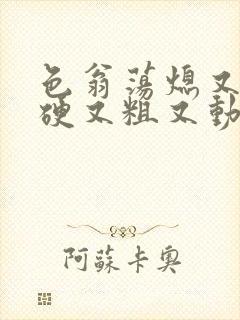 色翁荡熄又
硬又粗又動
阿蘇卡奧